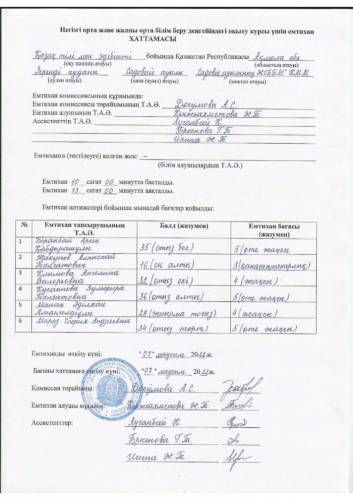 Негізгі орта және жалпы орта білім беру деңгейіндегі оқыту курсы үшін емтихан
ХАТТАМАСЫ
Қазақ тілі мен әдебиеті бойынша Қазақстан Республикасы Ақмола обл
(оқу пәнінің атауы) (облыстың атауы)
Зеренді ауданы Садовый ауылы Садовое ауылының ЖОББМ КММ
(ауданның атауы) (қала (ауыл) атауы) (мектеп атауы)
Емтихан комиссиясының құрамында:
Емтихан комиссиясы төрайымының Т.А.Ә. Досумова А.С.
Емтихан алушының Т.А.Ә. Кинжахметова Ж.Т
Ассистенттің Т.А.Ә. Ауганбай К
Бркенова Г.Т
Ижина Ж.Т
Емтиханға (тестілеуге) келген жоқ: –
(білім алушылардың Т.А.Ә.)
Емтихан 10 сағат 00 минутта басталды.
Емтихан 13 сағат 00 минутта аяқталды.
Емтихан нәтижелері бойынша мынадай бағалар қойылды:
№ Емтихан тапсырушының Т.А.Ә. Балл (жазумен) Емтихан бағасы (жазумен)
1 35 (отыз бес) 5 (өте жақсы)
2 16 (он алты) 3 (қанағаттанарлық)
3 Климова Ангелина Валерьевна 32 (отыз екі) 4 (жақсы)
4 Зульфира Талгатовна 36 (отыз алты) 5 (өте жақсы)
5 Аманкелдіұлы 28 (жиырма сегіз) 4 (жақсы)
6 Мороз София Андреевна 34 (отыз төрт) 5 (өте жақсы)
Емтиханды өткізу күні: "07" маусым 2022ж.
Бағаны хаттамаға енгізу күні: "07" маусым 2022ж.
Комиссия төрайымы: Досумова А.С
Емтихан алушы мұғалім: Кинжахметова Ж.Т
Ассистенттер: Ауганбай К
Бркенова Г.Т
Ижина Ж.Т